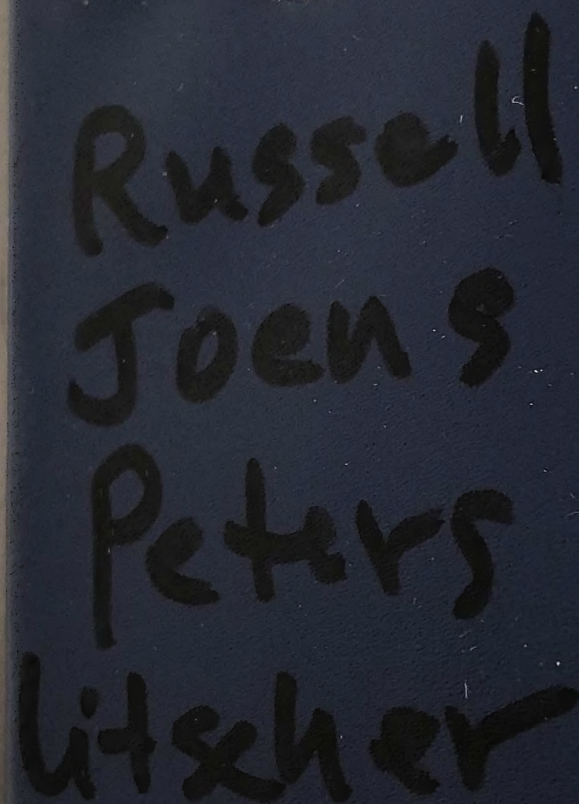 Russell
Joens
Peters
litscher